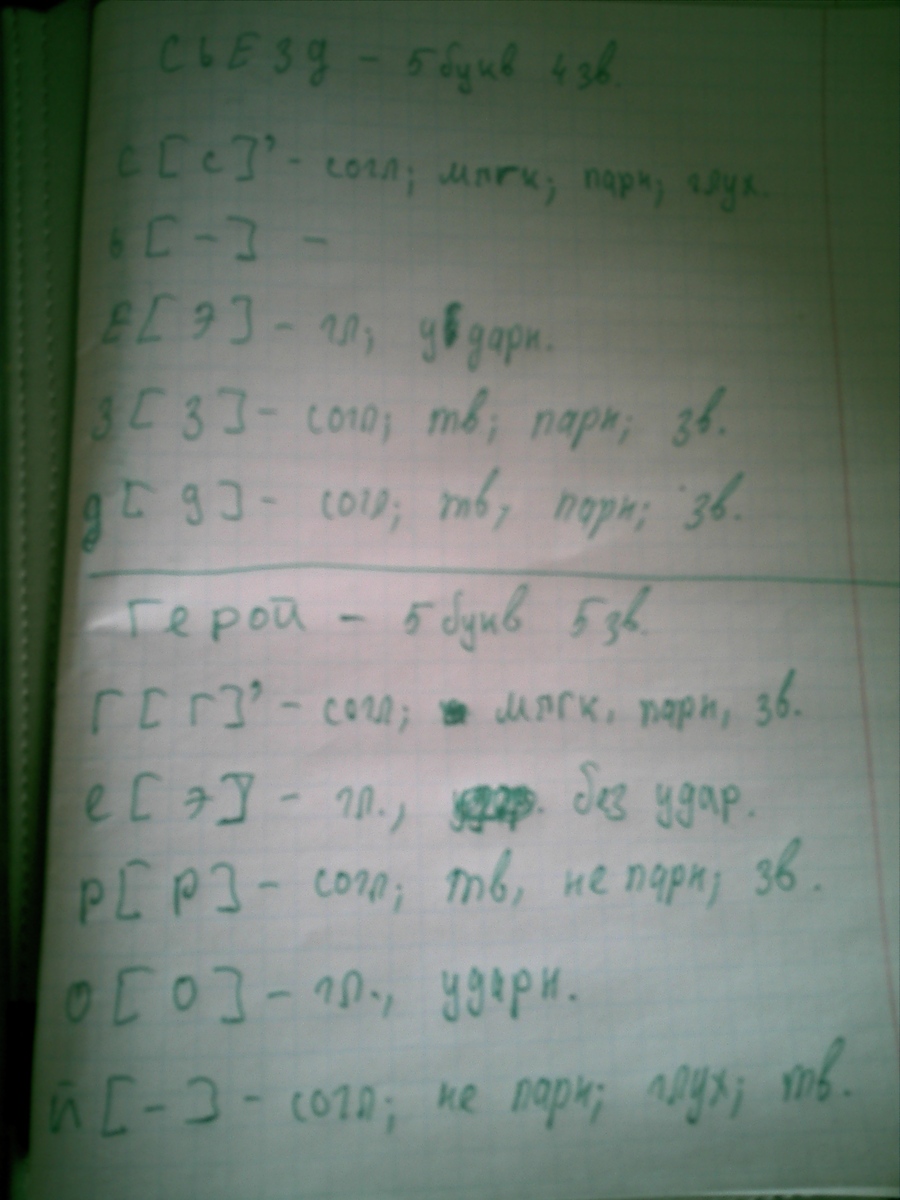 СЬЕЗД - 5 букв 4 зв.
с [с]' - согл; мягк; парн; глух.
ь [-] -
Е [э] - гл; ударн.
з [з] - согл; тв; парн; зв.
д [д] - согл; тв, парн; зв.
Герой - 5 букв 5 зв.
Г [г]' - согл; мягк, парн, зв.
е [э] - гл., без удар.
р [р] - согл; тв, не парн; зв.
о [о] - гл., ударн.
й [-] - согл; не парн; глух; тв.